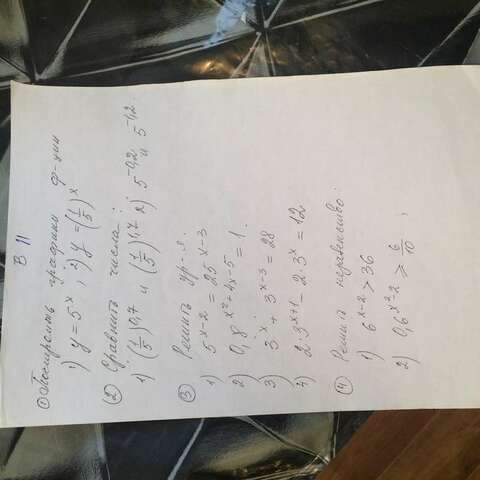 В 11
① Построить графики ф-ции
1) y = 5^x ; 2) y = (1/5)^x
② Сравнить числа:
1) (1/5)^0,7 и (1/5)^1,7 2) 5^-0,2 и 5^-1,2.
③ Решить ур-я.
1) 5^x-2 = 25^x-3
2) 0,8^x²+4x-5 = 1.
3) 3^x + 3^x-3 = 28
4) 2·3^x+1 - 2·3^x = 12
④ Решить неравенство:
1) 6^x-2 > 36
2) 0,6^x²-2 ⩾ 6/10 ;